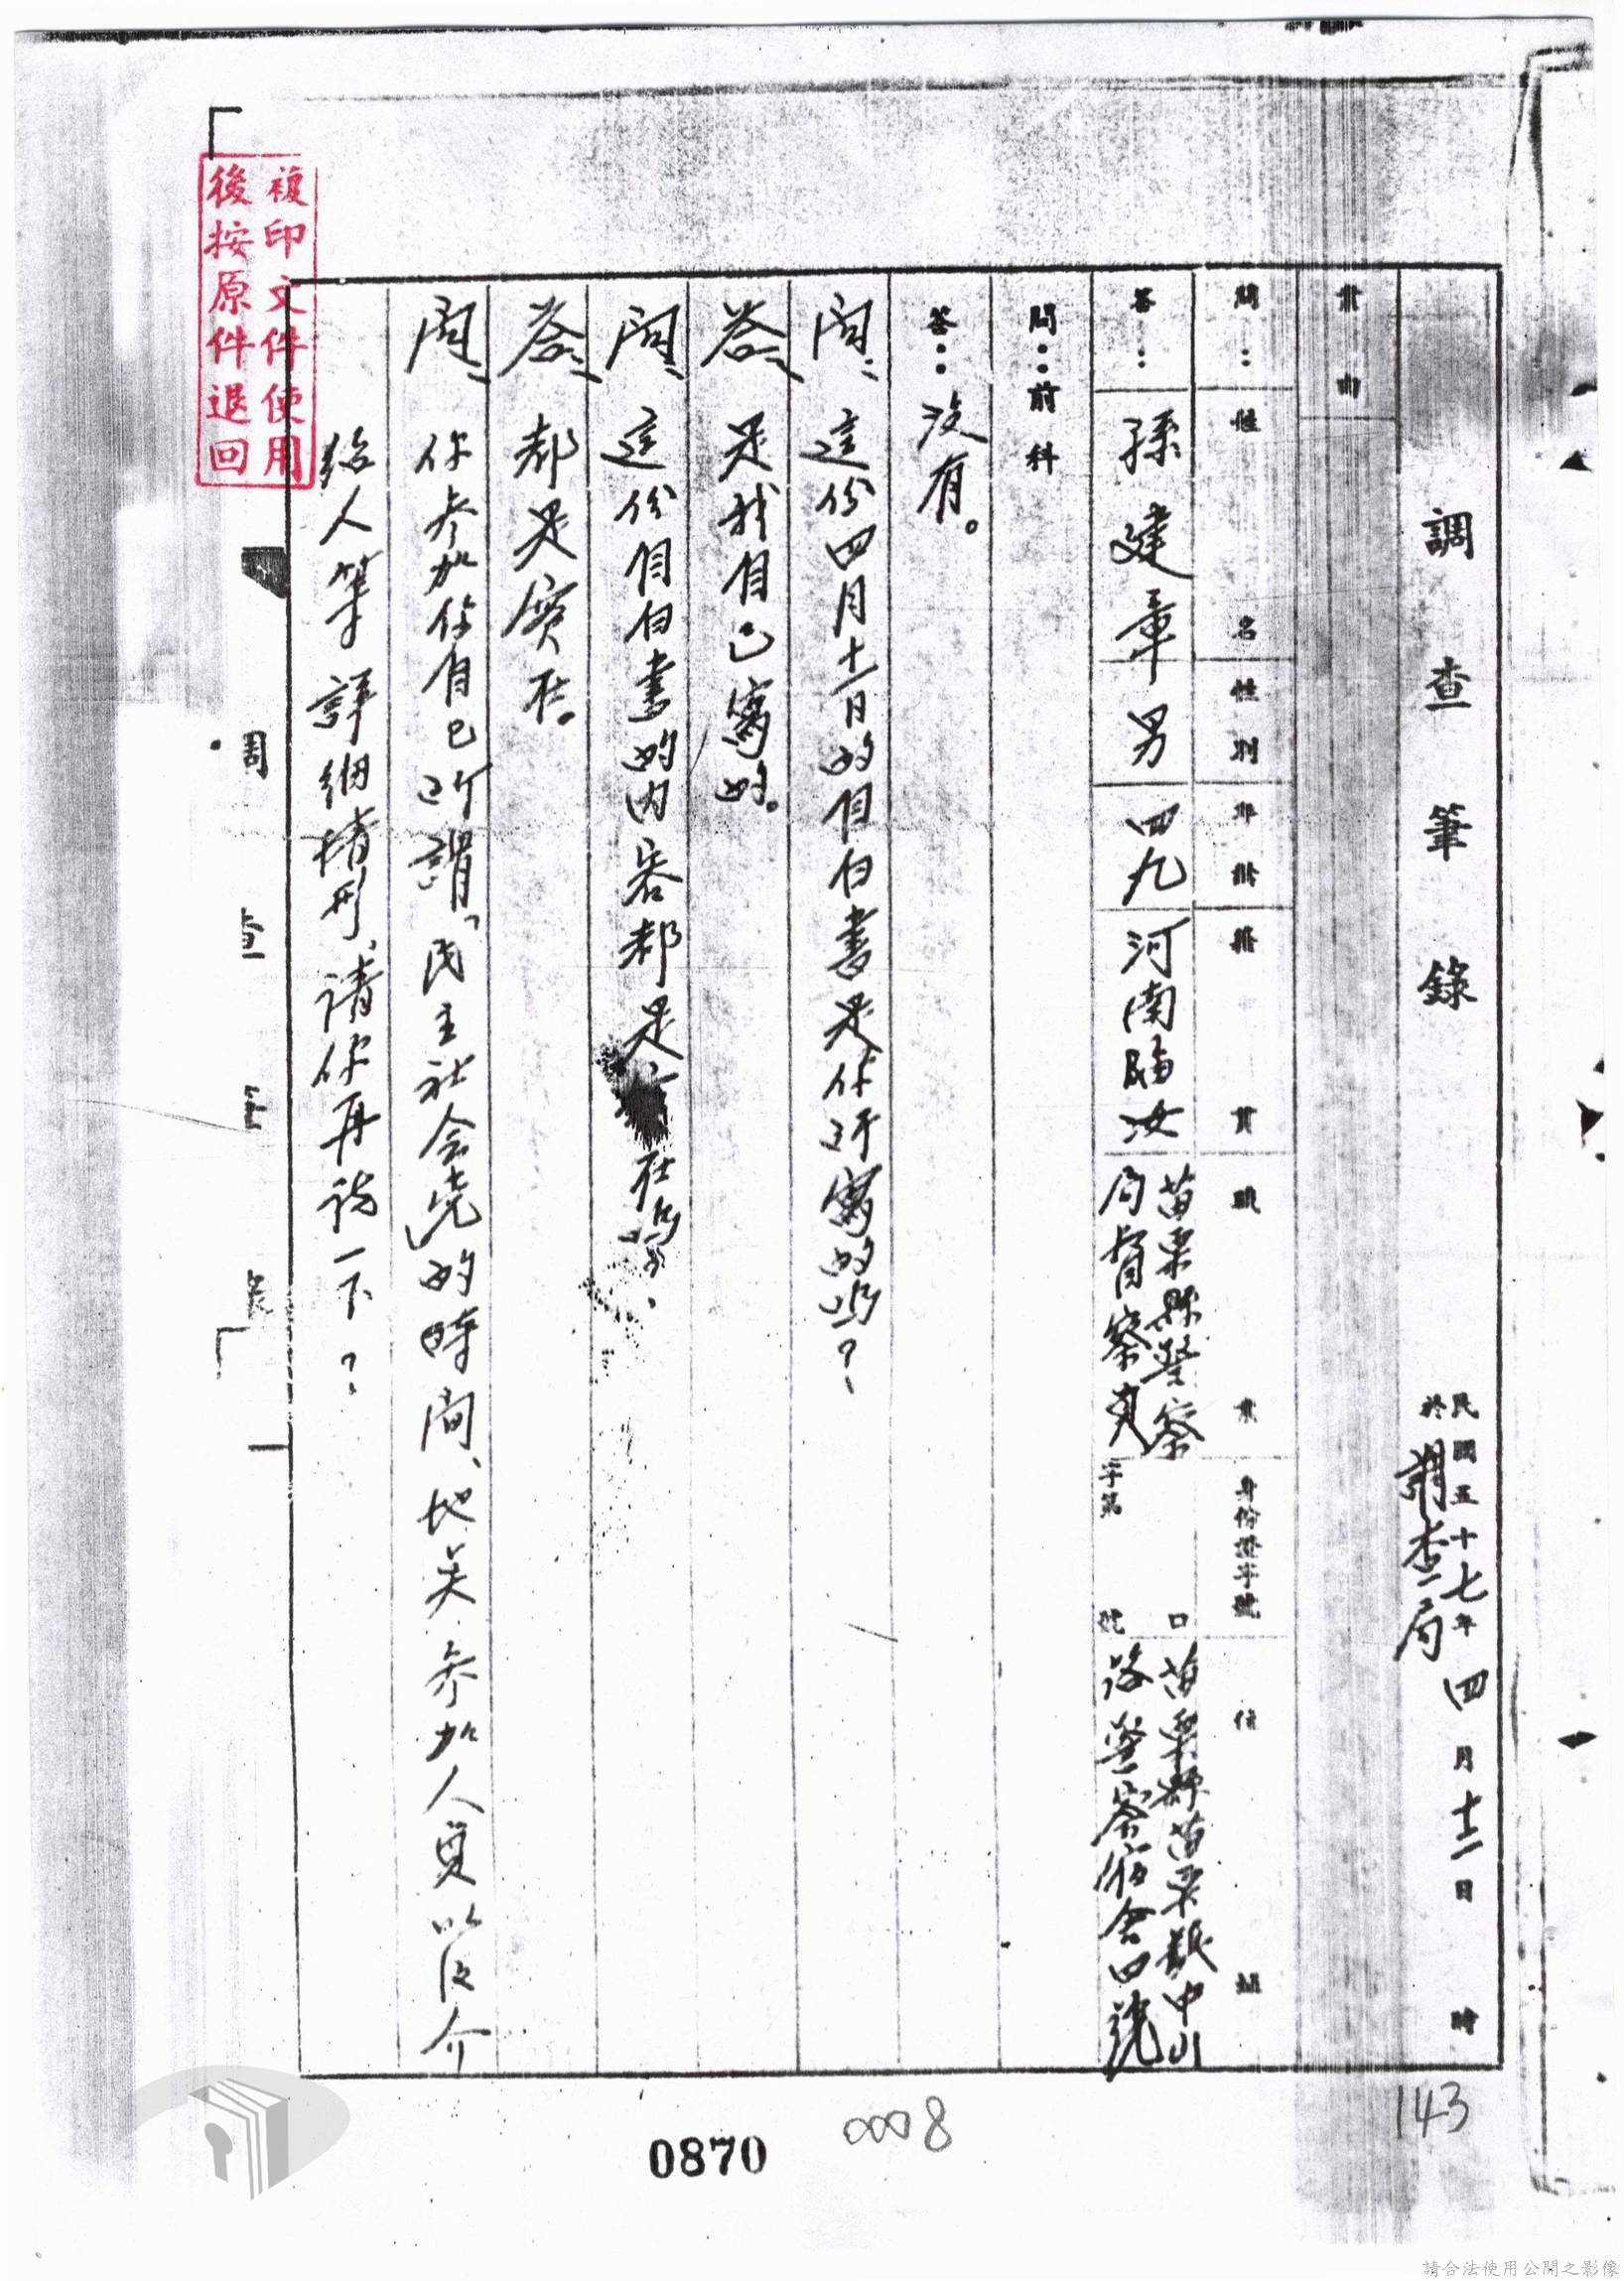 調查筆錄
民國五十七年四月十二日　時
於調查局
案由
問：姓名　性別　年齡　籍貫　職業　身份證字號　住址
答：孫建章　男　四九　河南臨汝　苗栗縣警察局督察員　字第　號　苗栗縣苗栗鎮中山路警察宿舍四號
問：前科
答：沒有。
問：這份四月十一日的自白書是你所寫的嗎？
答：是我自己寫的。
問：這份自白書的內容都是實在嗎？
答：都是實在。
問：你參加你自己所謂「民主社会党的時間、地矣、參加人員以及介
紹人等詳細情形、請你再說一下？
複印文件使用
後按原件退回
0870
0008
143
請合法使用公開之影像